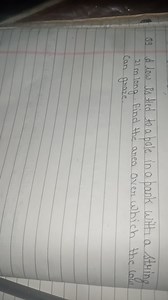 A cow is tied to a pole in a park with a string
21m long. Find the area over which the cow
can graze